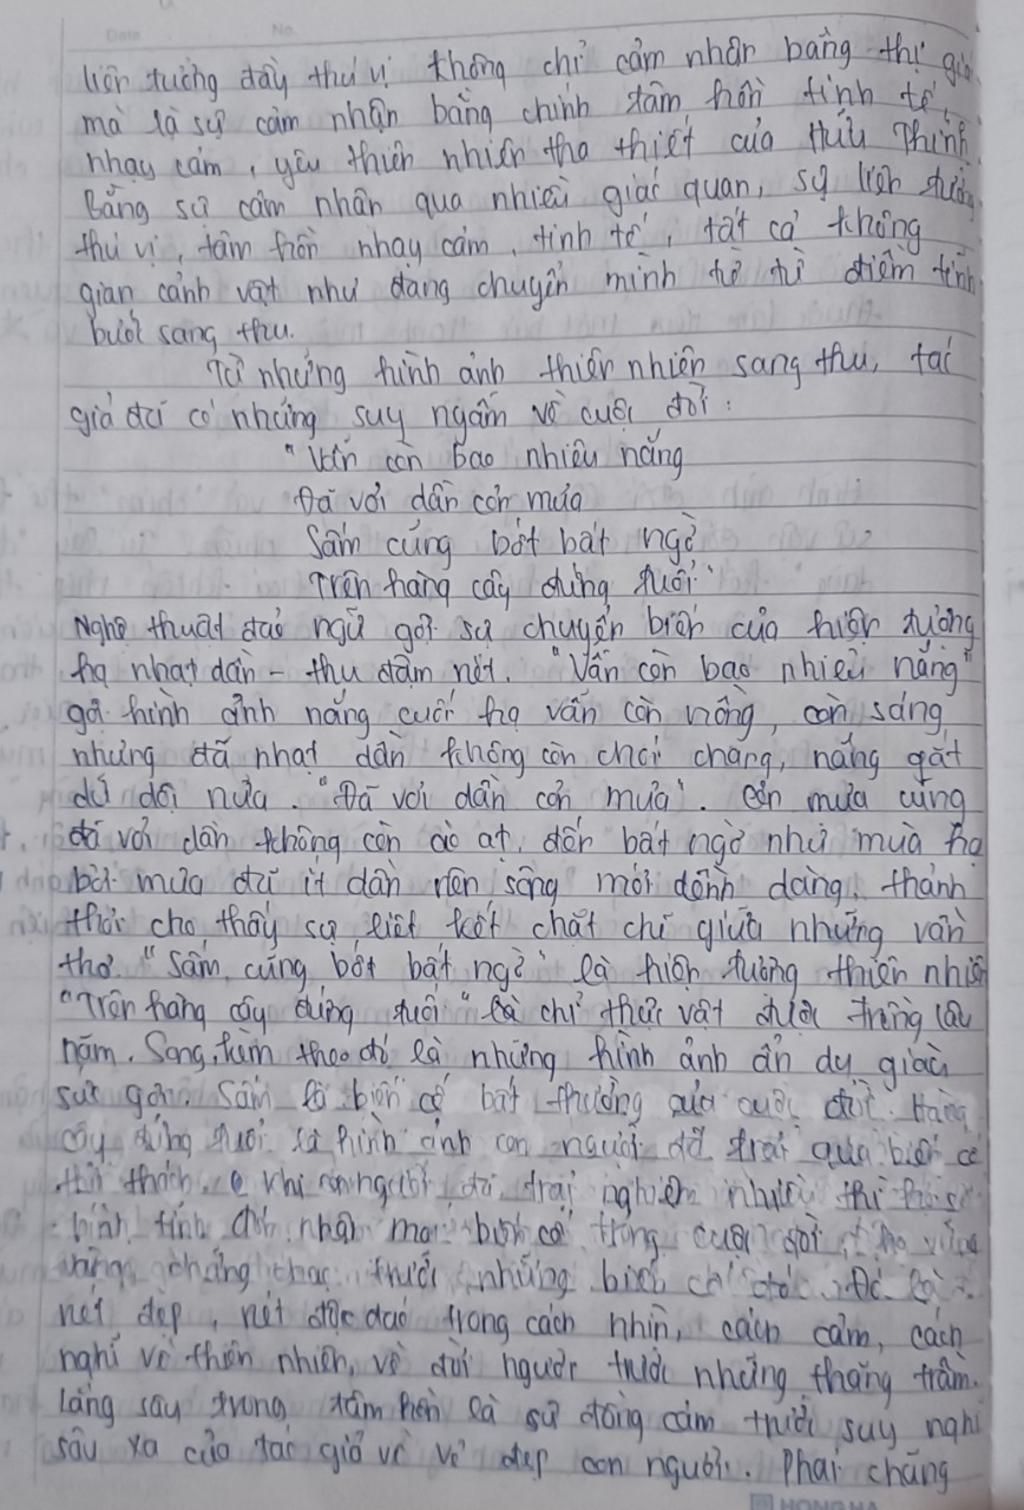 Date No
liên tưởng đầy thú vị không chỉ cảm nhận bằng thị giác
mà là sự cảm nhận bằng chính tâm hồn tinh tế,
nhạy cảm, yêu thiên nhiên tha thiết của Hữu Thỉnh.
Bằng sự cảm nhận qua nhiều giác quan, sự liên tưởng
thú vị, tâm hồn nhạy cảm, tinh tế, tất cả không
gian cảnh vật như đang chuyển mình từ từ điềm tĩnh
bước sang thu.
Từ những hình ảnh thiên nhiên sang thu, tác
giả đã có những suy ngẫm về cuộc đời:
"Vẫn còn bao nhiêu nắng
Đã vơi dần cơn mưa
Sấm cũng bớt bất ngờ
Trên hàng cây đứng tuổi"
Nghệ thuật đảo ngữ gợi sự chuyển biến của hiện tượng
hạ nhạt dần - thu đậm nét. "Vẫn còn bao nhiêu nắng"
gợi hình ảnh nắng cuối hạ vẫn còn nồng, còn sáng,
nhưng đã nhạt dần không còn chói chang, nắng gắt
dữ dội nữa. "Đã vơi dần cơn mưa". Cơn mưa cũng
đã vơi dần không còn ào ạt, đến bất ngờ như mưa hạ
bởi mưa đã ít dần nên sông mới dềnh dàng, thảnh
thơi cho thấy sự liết kết chặt chẽ giữa những vần
thơ. "Sấm cũng bớt bất ngờ" là hiện tượng thiên nhiên
"Trên hàng cây đứng tuổi" là chỉ thực vật được trồng lâu
năm. Song, kèm theo đó là những hình ảnh ẩn dụ giàu
sức gợi. Sấm là biến cố bất thường của cuộc đời. Hàng
cây đứng tuổi là hình ảnh con người đã trải qua biến cố
thử thách. khi con người đã trải nghiệm nhiều thì họ sẽ
bình tĩnh đón nhận mọi biến cố trong cuộc đời, vững
vàng, chẳng trước những biến cố đó. Đó là
nét đẹp, nét độc đáo trong cách nhìn, cách cảm, cách
nghĩ về thiên nhiên, về đời người trước những thăng trầm.
Lắng sâu trong tâm hồn là sự đồng cảm trước suy nghĩ
sâu xa của tác giả về vẻ đẹp con người. Phải chăng
HONG HA